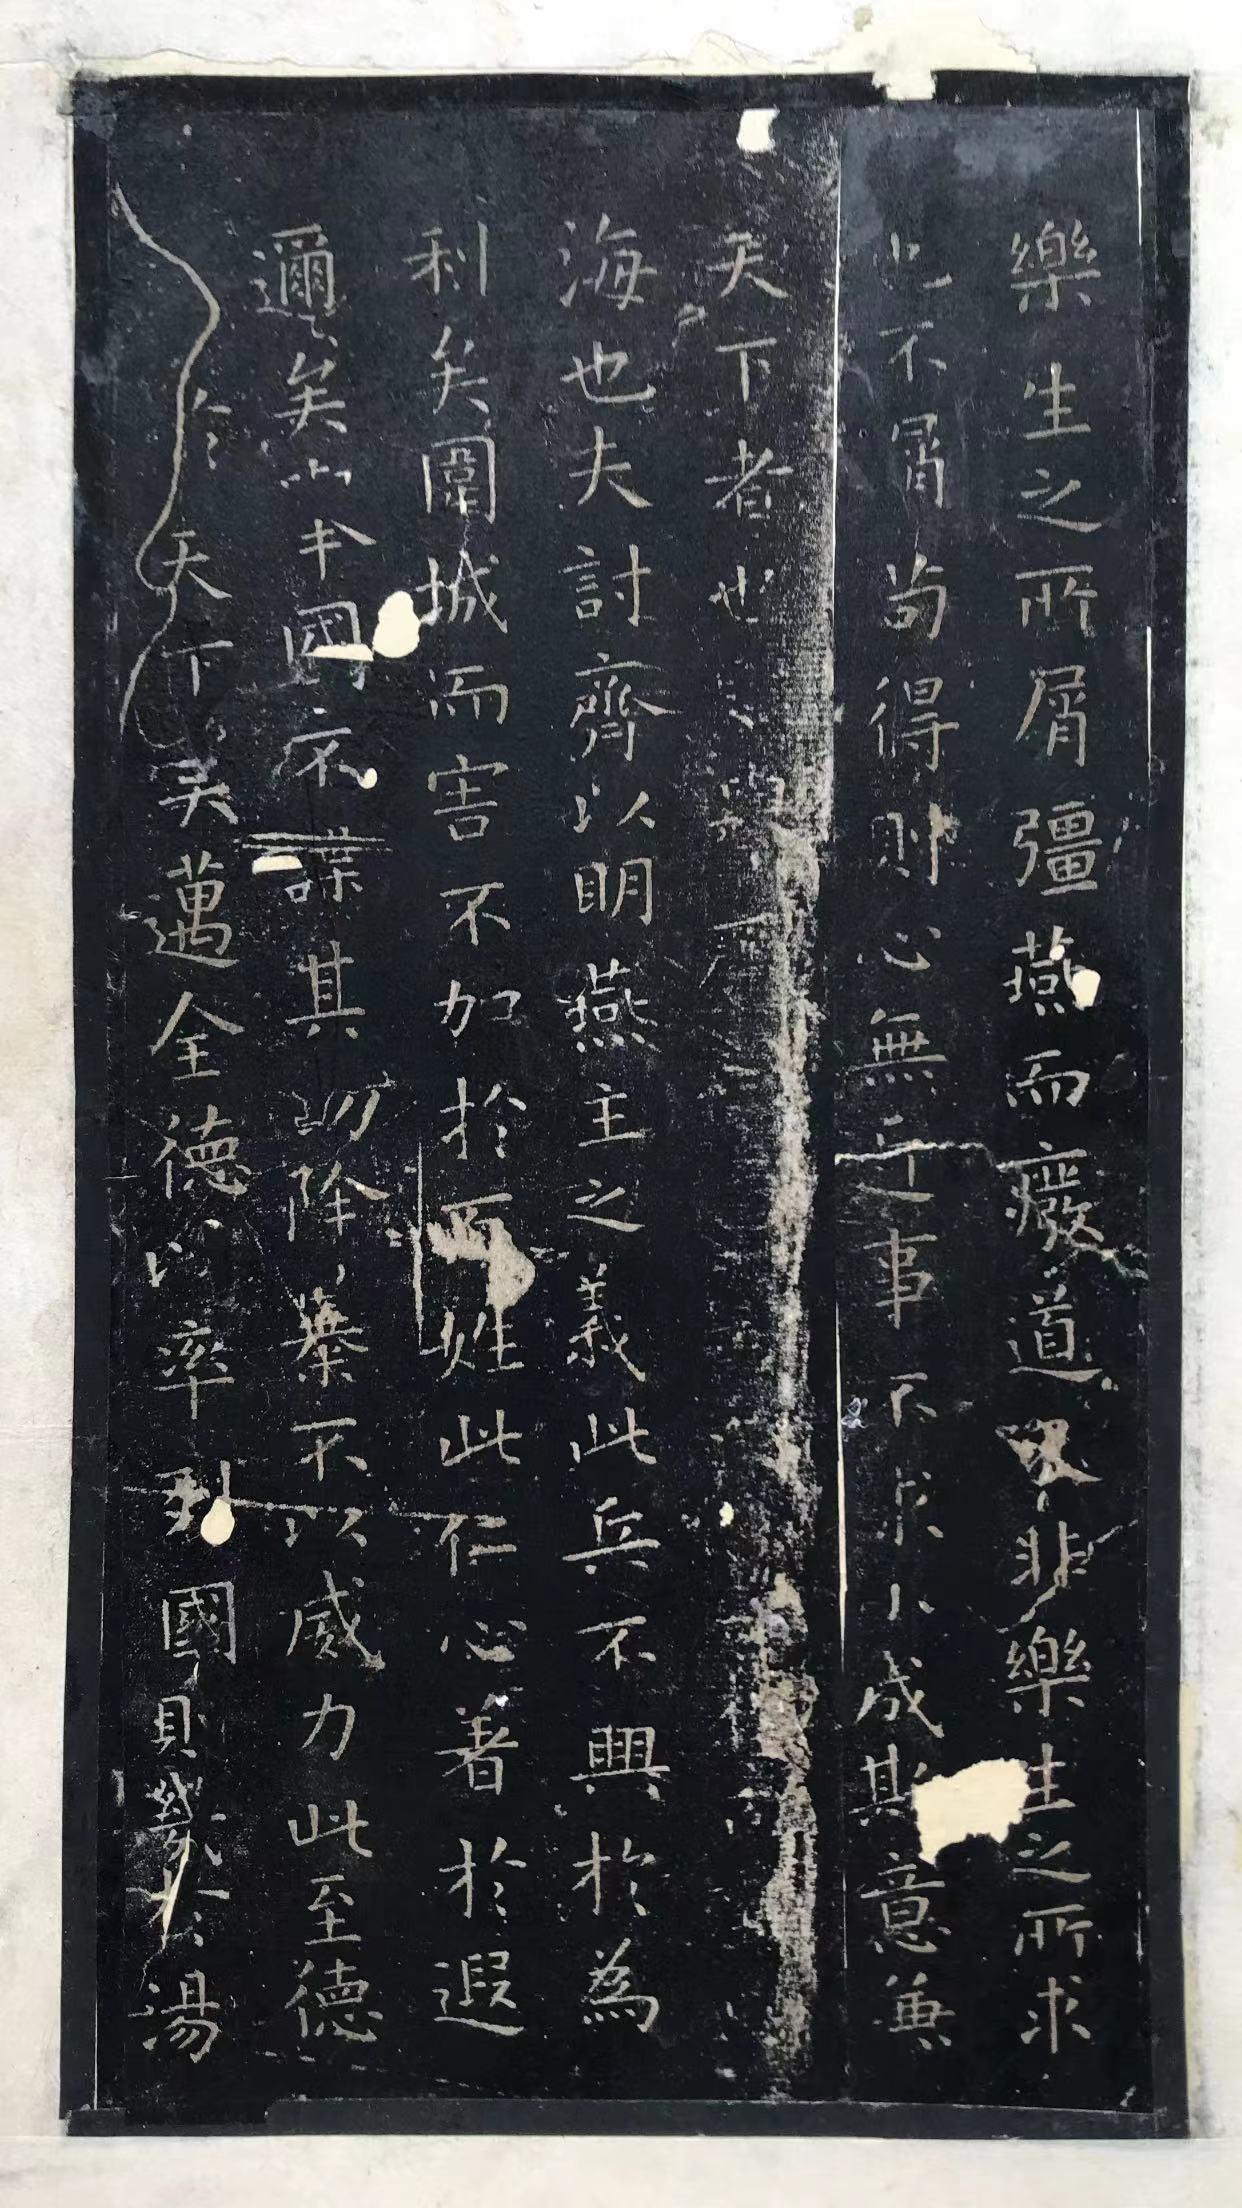 樂生之所屑彊燕而廢道又非樂生之所求
也不屑苟得則心無近事不求小成斯意兼
天下者也
海也夫討齊以明燕主之義此兵不興於為
利矣圍城而害不加於百姓此仁心著於遐
邇矣舉國不謀其功除暴不以威力此至德
令於天下矣邁全德以率列國則幾於湯